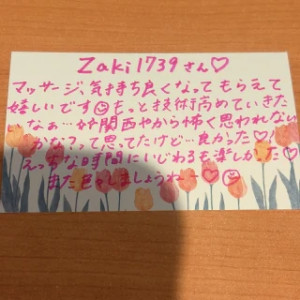 Zaki1739さん♡
マッサージ、気持ち良くなってもらえて
嬉しいです☺もっと技術高めていきた
いなぁ… 関西やから怖く思われない
かな?って思ってたけど…良かった♡!
えっちな時間にいじわるも楽しかった♡
また色々しましょうねー♡☺